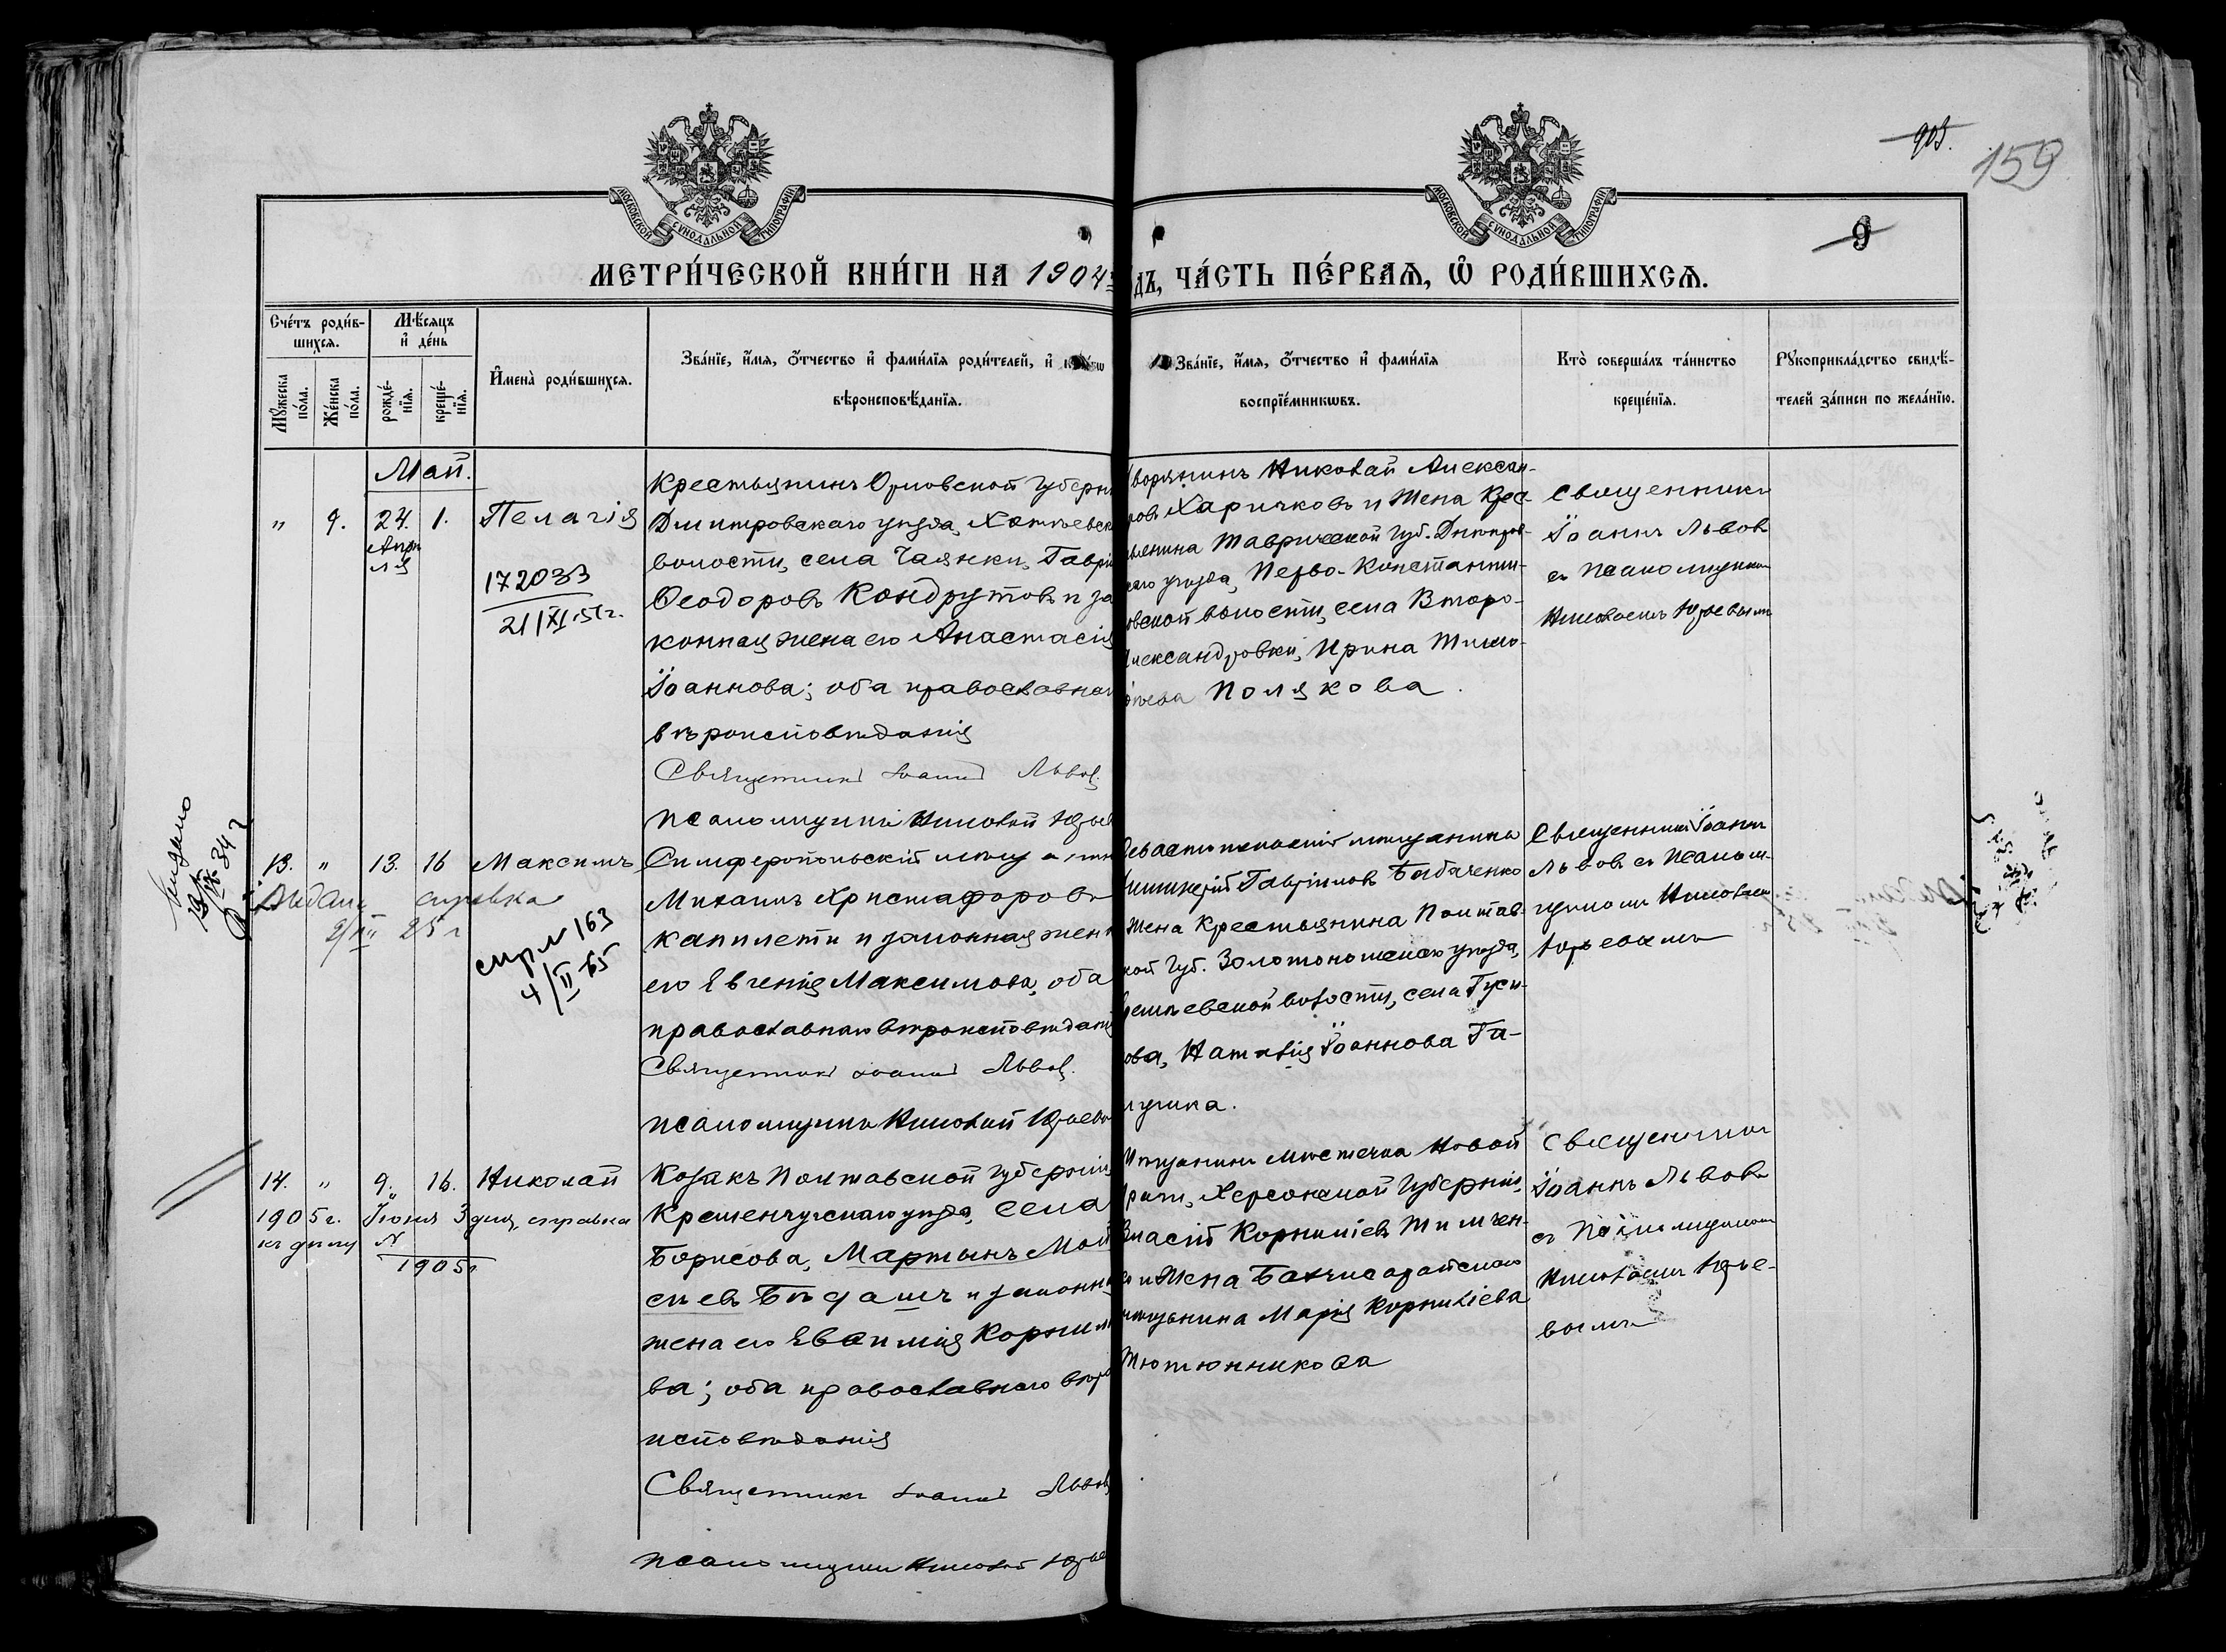 903.
159
9
МОСКОВСКОЙ СУНОДАЛЬНОЙ ТИПОГРАФІИ
МОСКОВСКОЙ СУНОДАЛЬНОЙ ТИПОГРАФІИ
МЕТРИ́ЧЕСКОЙ КНИ́ГИ НА 1904
ДЪ, ЧА́СТЬ ПЕ́РВАѦ, Ѡ РОДИ́ВШИХСѦ.
Сче́тъ роди́в-
шихсѧ.
Мѣ́сѧцъ
и҆ де́нь
Мꙋ́жеска по́ла.
Же́нска по́ла.
рожде́-
нїѧ.
креще́-
нїѧ.
И҆мена̀ роди́вшихсѧ.
Зва́нїе, и҆́мѧ, о҆́тчество и҆ фами́лїѧ роди́телей, и҆
вѣроисповѣ́данїѧ.
Зва́нїе, и҆́мѧ, о҆́тчество и҆ фами́лїѧ
воспрїе́мникѡвъ.
Кто̀ соверша́лъ та́инство
креще́нїѧ.
Рꙋкоприкла́дство свидѣ́-
телей за́писи по жела́нїю.
Май.
" 9. 24. 1. Пелагія
Апрѣ
ля
172033
21/XI 51г.
Крестьянинъ Орловской губерн
Дмитровскаго уѣзда, Хотьевск
волости, села Чаянки, Гаврі
Ѳеодоровъ Кондрутовъ и за
конная жена его Анастасія
Іоаннова; оба православна
вѣроисповѣданія
Священникъ Іоаннъ Львов
псаломщикъ Николай Юрьев
воринъ Николай Алексан-
ровъ Харичковъ и жена Крес-
ьянина Таврической губ. Днѣпров-
каго уѣзда, Перво-Константи-
овской волости, села Второ-
лександровки, Ирина Тимо-
ѳеева Полякова.
Священникъ
Іоаннъ Львовъ
съ псаломщикомъ
Николаемъ Юрьевымъ
13. " 13. 16 Максимъ
Выдана справка
25 г
спр № 163
4/II-65
Выдано
34 г
Симферопольскій мѣщанин
Михаилъ Христафоровъ
Каплети и законная жена
его Евгенія Максимова, оба
православнаго вѣроисповѣдані
Священникъ Іоаннъ Львов
псаломщикъ Николай Юрьевъ
Севастопольскій мѣщанинъ
Гавріиловъ Бабаченко
жена Крестьянина Полтав-
кой губ. Золотоношскаго уѣзда,
евской волости, села Гуси-
ова, Наталія Іоаннова Га-
Священникъ Іоаннъ
Львовъ съ псалом-
щикомъ Николаем
Юрьевымъ
14. " 9. 16. Николай
1905 г. Іюня 3 дня, справка
къ дѣлу №
1905 г
Козакъ Полтавской губерніи
Кременчугскаго уѣзда, села
Борисова, Мартынъ Мои
сеевъ Бѣдашъ и законна
жена его Евѳимія Корнил
ва; оба православнаго вѣро
исповѣданія
Священникъ Іоаннъ Львовъ
псаломщикъ Николай Юрьев
мѣщанинъ мѣстечка Новой
Праги, Херсонской губерніи,
Власій Корниліевъ Тимчен-
о и жена Бахчисарайскаго
мѣщанина Марія Корниліева
Тютюнникова
Священникъ
Іоаннъ Львовъ
съ псаломщикомъ
Николаемъ Юрье-
вымъ